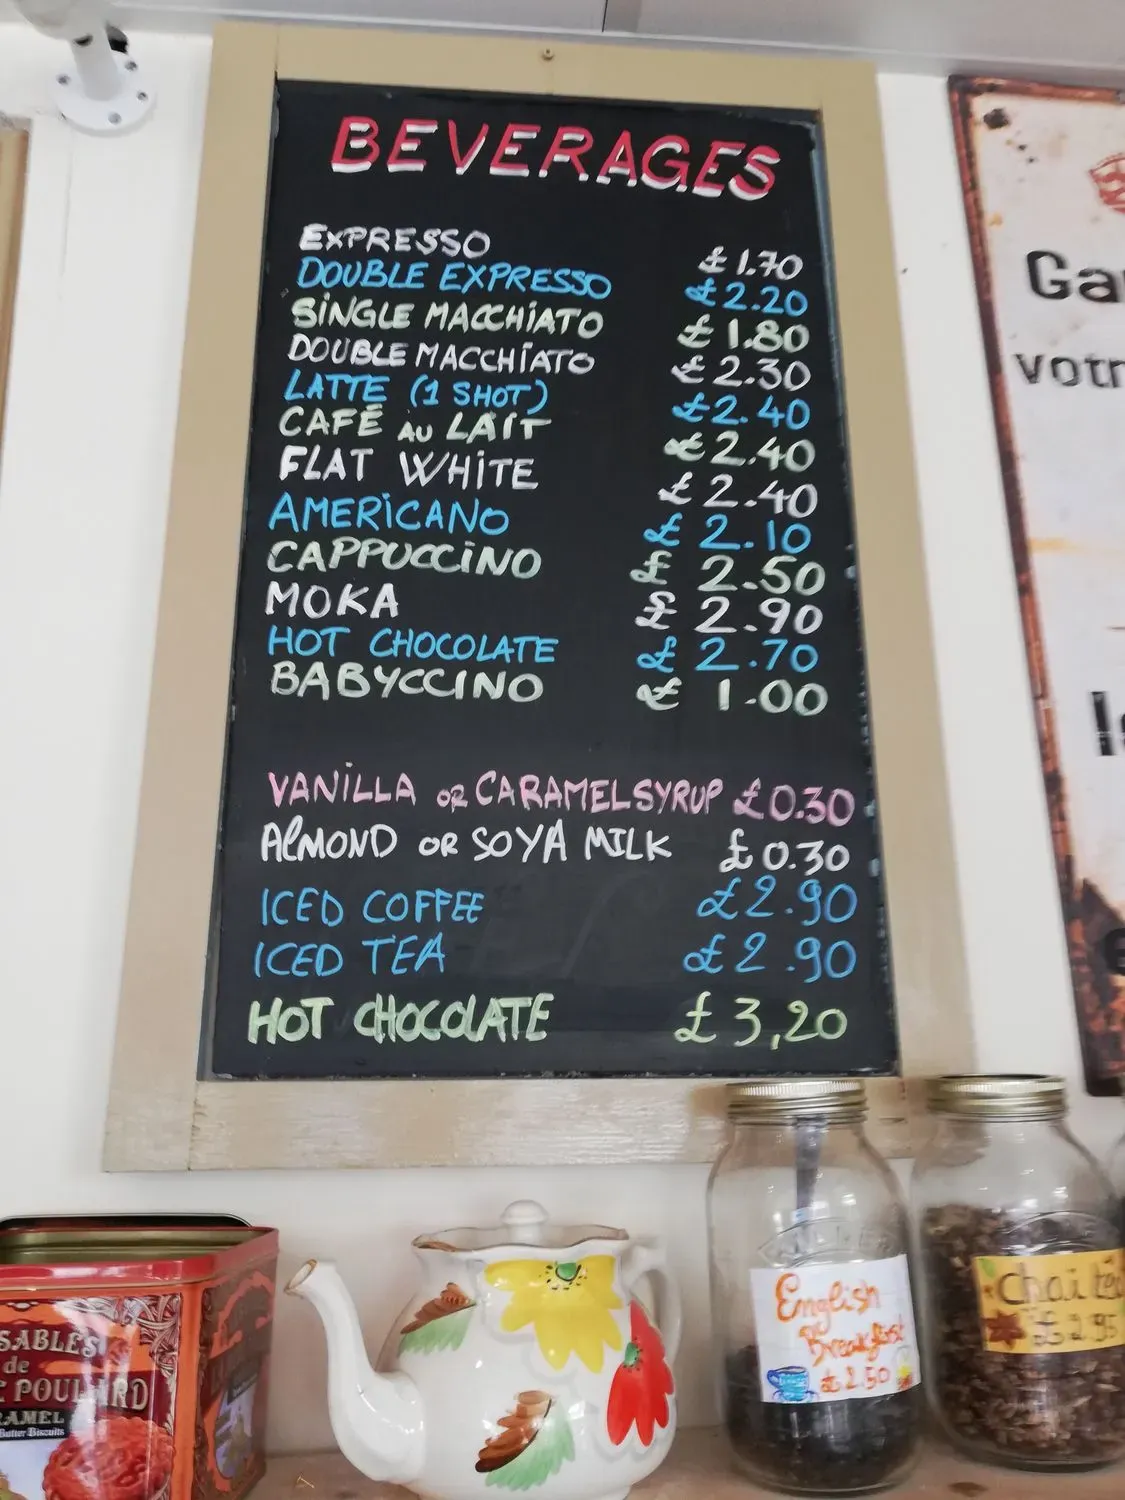 BEVERAGES
EXPRESSO £1.70
DOUBLE EXPRESSO £2.20
SINGLE MACCHIATO £1.80
DOUBLE MACCHIATO £2.30
LATTE (1 SHOT) £2.40
CAFÉ AU LAIT £2.40
FLAT WHITE £2.40
AMERICANO £2.10
CAPPUCCINO £2.50
MOKA £2.90
HOT CHOCOLATE £2.70
BABYCCINO £1.00
VANILLA OR CARAMEL SYRUP £0.30
ALMOND OR SOYA MILK £0.30
ICED COFFEE £2.90
ICED TEA £2.90
HOT CHOCOLATE £3,20
Ga
votr
SABLÉS
de
POULARD
RAMEL
Butter Biscuits
English
Breakfast
£2.50
Chai té
£2.95